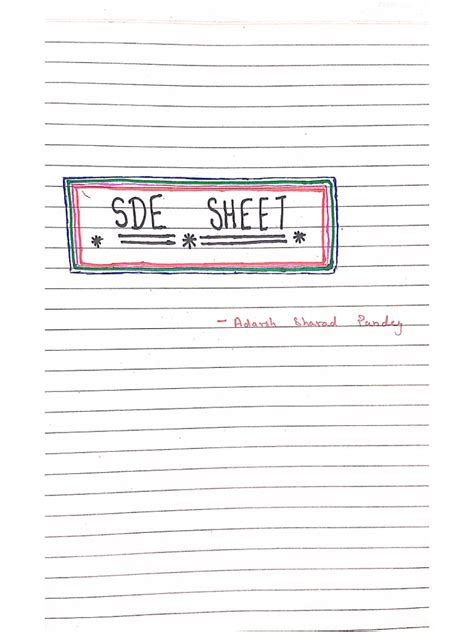 SDE SHEET
- Adarsh Sharad Pandey